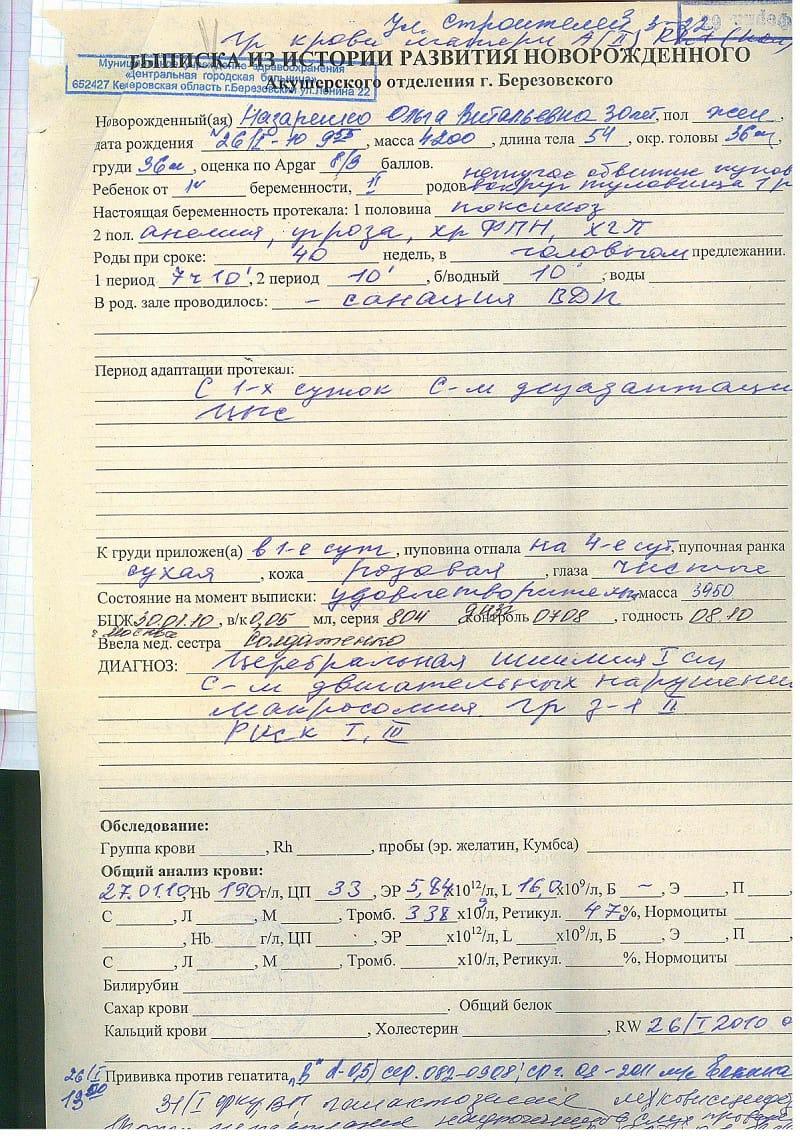 ул. строителей 3-22
гр крови матери А(II) Rh+
ВЫПИСКА ИЗ ИСТОРИИ РАЗВИТИЯ НОВОРОЖДЕННОГО
Муниципальное учреждение здравоохранения
«Центральная городская больница»
652427 Кемеровская область г.Березовский ул.Ленина 22
Акушерского отделения г. Березовского
Новорожденный(ая) Ольга Витальевна 30 лет, пол жен,
дата рождения 26/I-10 9 55, масса 4200, длина тела 54, окр. головы 36 см,
груди 36 см, оценка по Apgar 8/9 баллов.
нетугое обвитие пупов
Ребенок от беременности, II родов вокруг туловища 1 р
Настоящая беременность протекала: 1 половина токсикоз
2 пол. анемия, угроза, хр ФПН, ХГП
Роды при сроке: 40 недель, в головном предлежании.
1 период 7ч 10', 2 период 10', б/водный 10', воды
В род. зале проводилось: - санация ВДП
Период адаптации протекал:
С 1-х суток С-м дизадаптаци
ЦНС
К груди приложен(а) в 1-е сут, пуповина отпала на 4-е сут, пупочная ранка
сухая, кожа розовая, глаза чистые
Состояние на момент выписки: удовлетворительн масса 3950
БЦЖ 30.01.10, в/к 0,05 мл, серия 804 контроль 0708, годность 08.10
г Москва
Ввела мед. сестра Солдатенко
ДИАГНОЗ: Церебральная ишимия I ст
С-м двигательных нарушени
Макросомия. гр з-я II
Риск I, III
Обследование:
Группа крови , Rh , пробы (эр. желатин, Кумбса)
Общий анализ крови:
27.01.10, Hb 190 г/л, ЦП 33, ЭР 5,84 х10¹²/л, L 16,0 х10⁹/л, Б -, Э , П ,
С , Л , М , Тромб. 338 х10⁹/л, Ретикул. 47%, Нормоциты
, Hb г/л, ЦП , ЭР х10¹²/л, L х10⁹/л, Б , Э , П ,
С , Л , М , Тромб. х10/л, Ретикул. %, Нормоциты
Билирубин
Сахар крови . Общий белок
Кальций крови , Холестерин , RW 26/I 2010
26/I Прививка против гепатита „В" д-0,5) сер. 082-0908; ср г. 08-2011
13 00
31/I фку, ВГ, галактоземия, муковисцидо